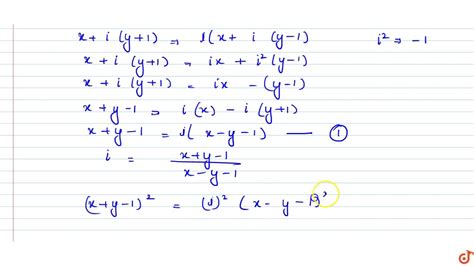 x + i (y+1) = i(x + i (y-1)    i² = -1
x + i (y+1) = ix + i² (y-1)
x + i (y+1) = ix - (y-1)
x + y - 1 = i(x) - i (y+1)
x + y - 1 = i( x - y - 1) — ①
i = x+y-1 / x-y-1
(x+y-1)² = (i)² (x - y - 1)²